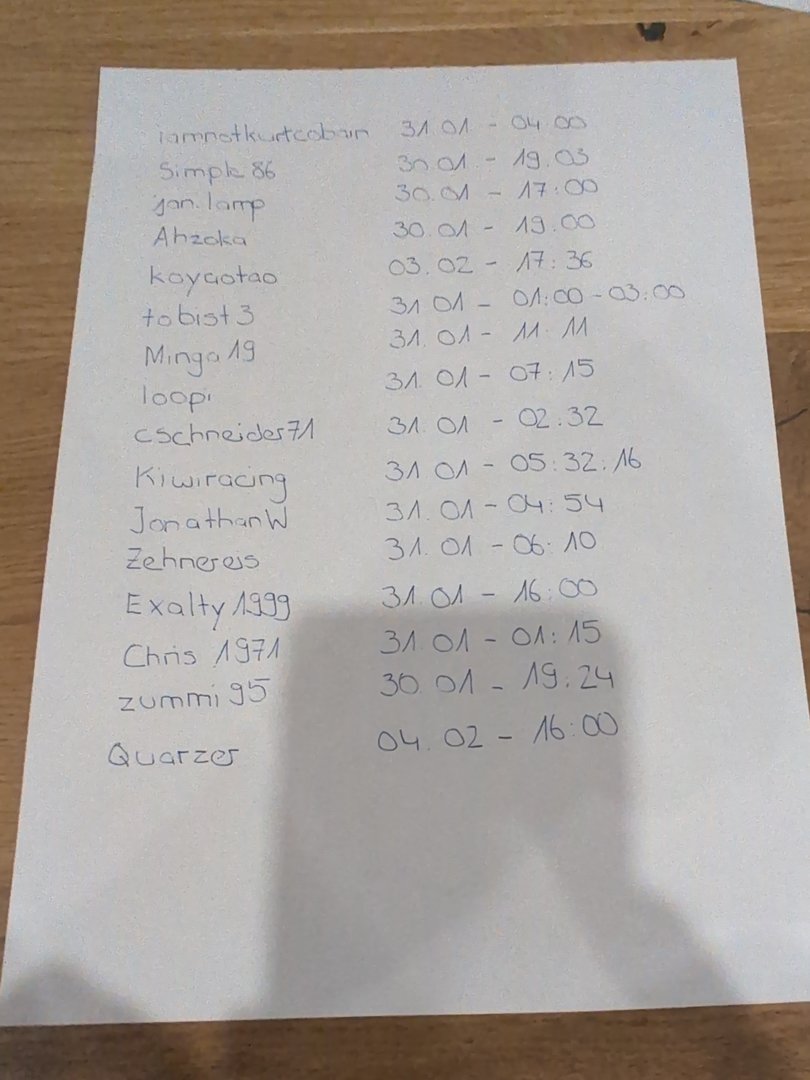 iamnotkurtcobain 31.01 - 04:00
Simple 86 30.01 - 19.03
jan.lamp 30.01 - 17:00
Ahzoka 30.01 - 19.00
koyaotao 03.02 - 17:36
tobist3 31.01 - 01:00-03:00
Minga19 31.01 - 11:11
loopi 31.01 - 07:15
cschneider71 31.01 - 02.32
Kiwiracing 31.01 - 05:32:16
JonathanW 31.01 - 04:54
Zehnereis 31.01 - 06:10
Exalty1999 31.01 - 16:00
Chris 1971 31.01 - 01:15
zummi95 30.01 - 19.24
Quarzer 04.02 - 16:00